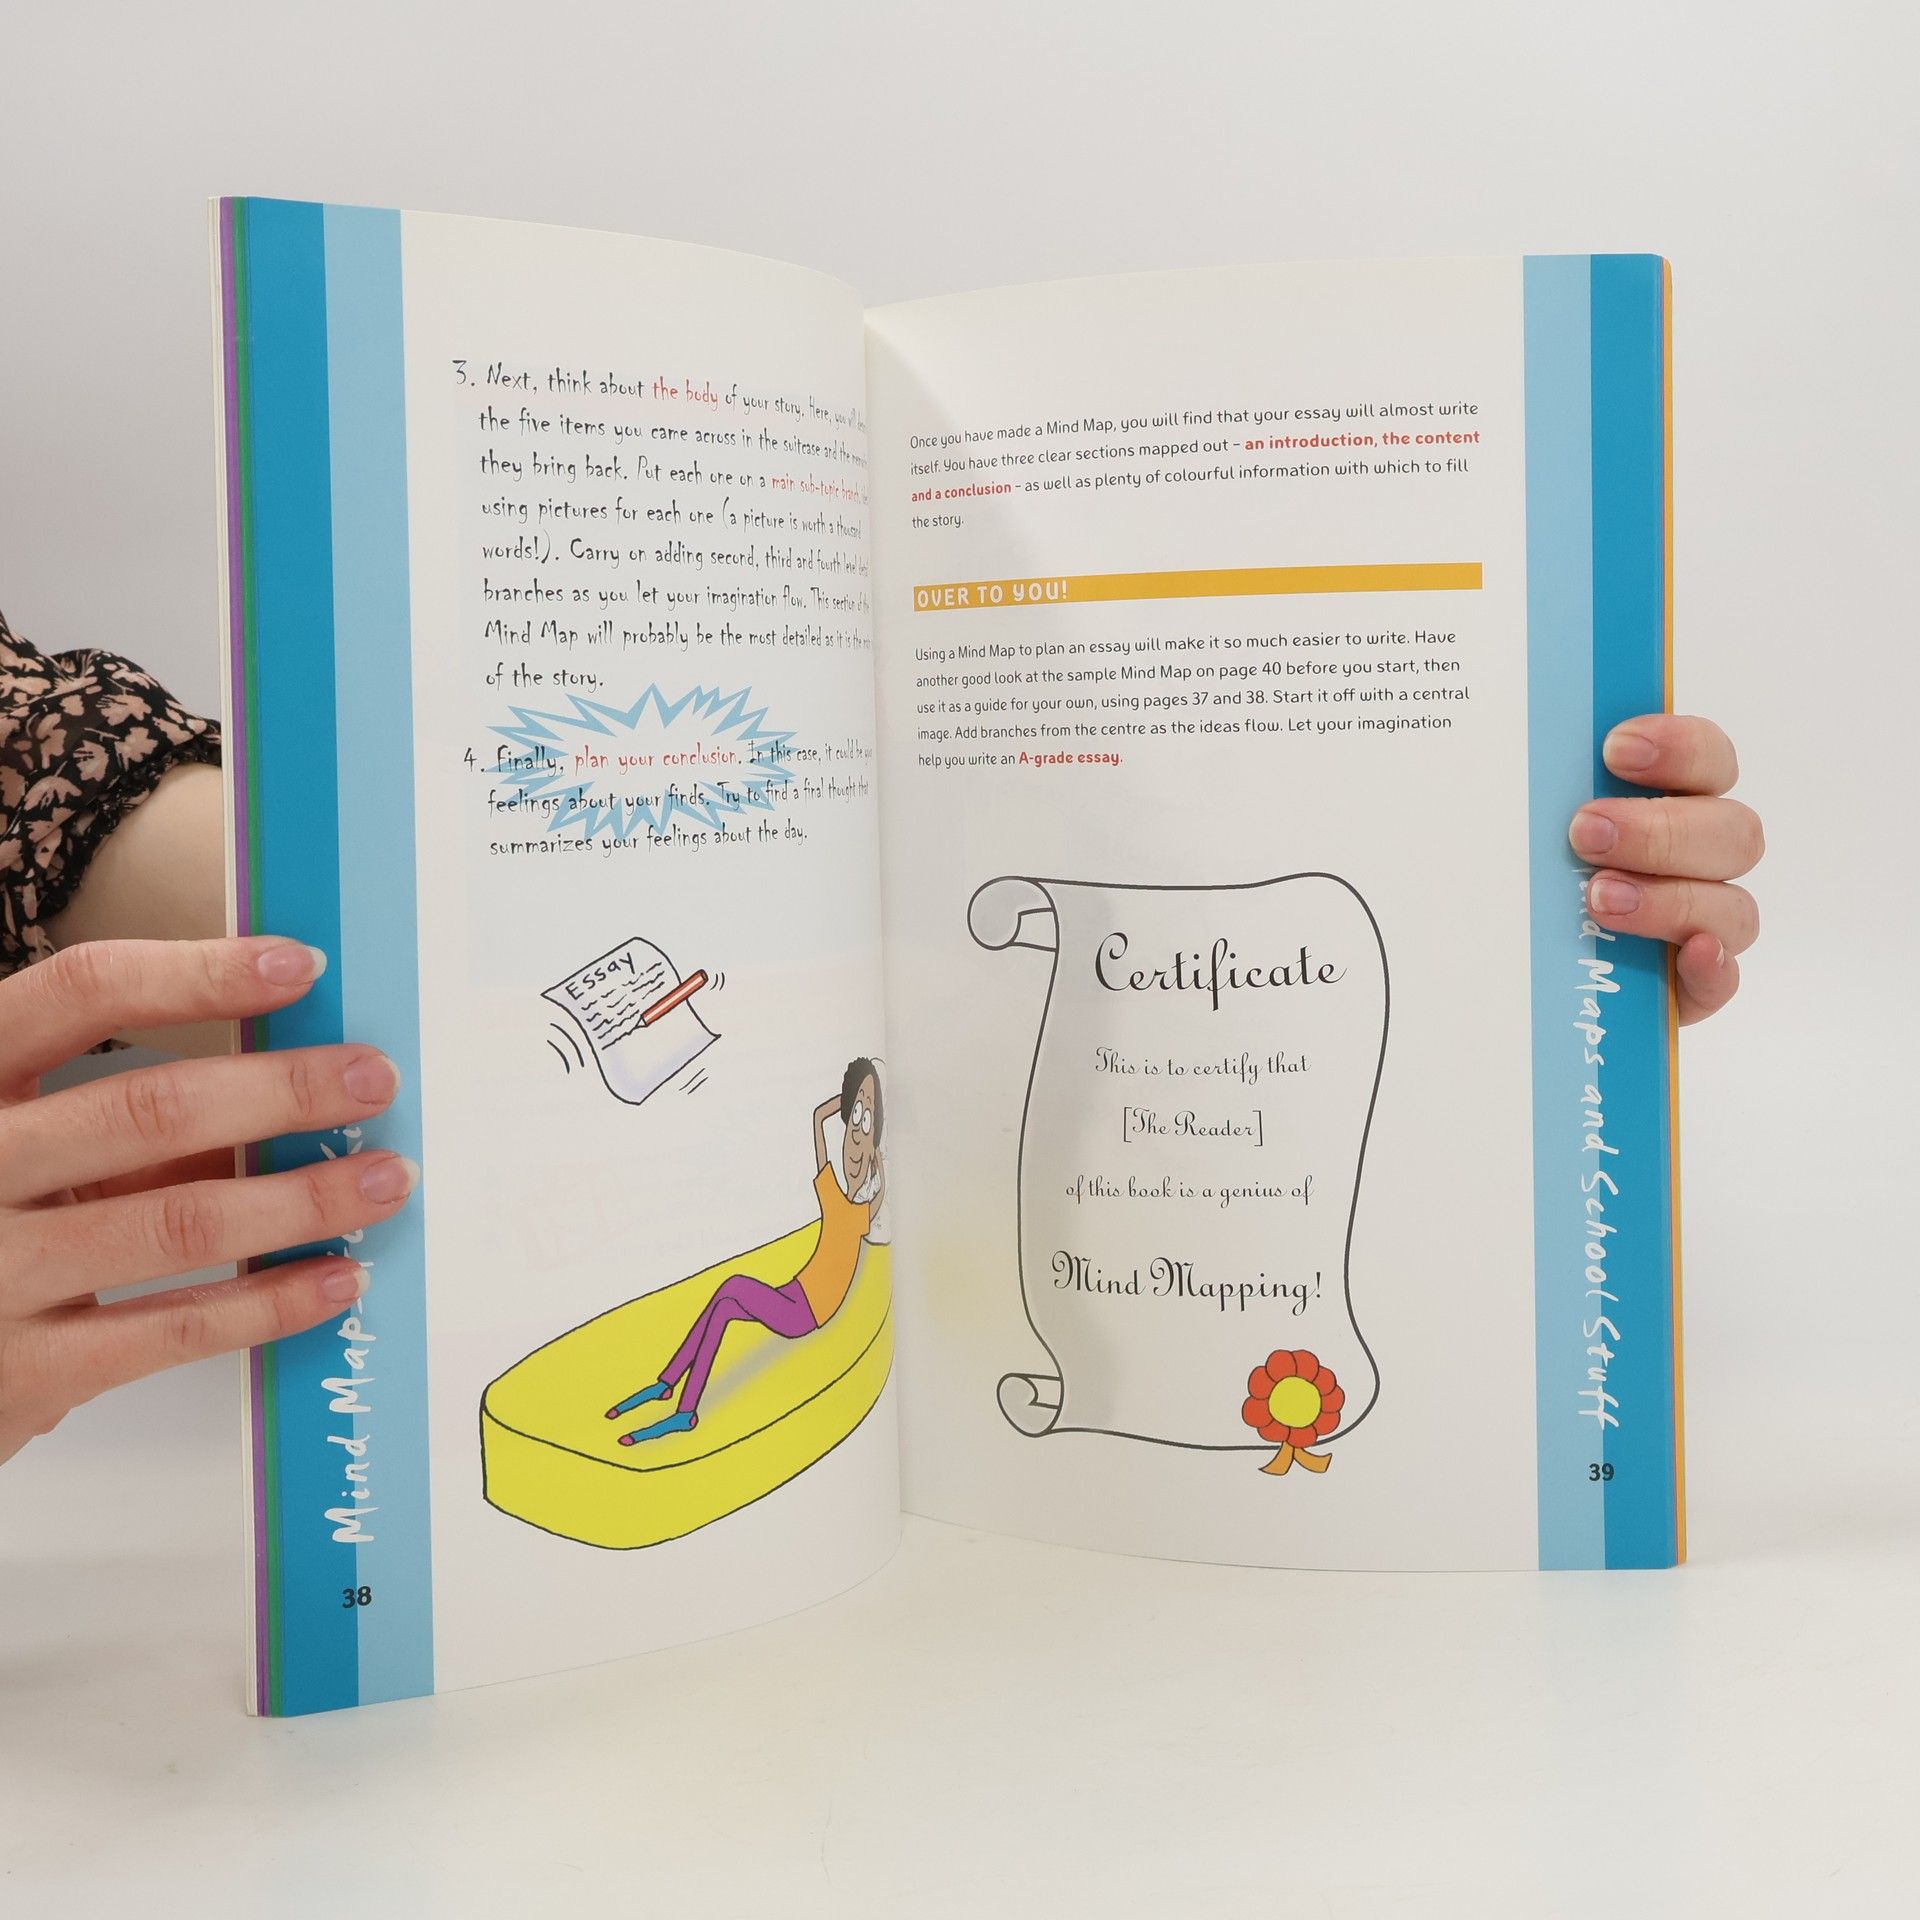 3. Next, think about the body of your story. Here, you will
the five items you came across in the suitcase and the
they bring back. Put each one on a main sub-topic branch,
using pictures for each one (a picture is worth a thousand
words!). Carry on adding second, third and fourth level
branches as you let your imagination flow. This section of
Mind Map will probably be the most detailed as it is the
of the story.
4. Finally, plan your conclusion. In this case, it could be
feelings about your finds. Try to find a final thought that
summarizes your feelings about the day.
Essay
Mind Maps
38
Once you have made a Mind Map, you will find that your essay will almost write
itself. You have three clear sections mapped out – an introduction, the content
and a conclusion – as well as plenty of colourful information with which to fill
the story.
OVER TO YOU!
Using a Mind Map to plan an essay will make it so much easier to write. Have
another good look at the sample Mind Map on page 40 before you start, then
use it as a guide for your own, using pages 37 and 38. Start it off with a central
image. Add branches from the centre as the ideas flow. Let your imagination
help you write an A-grade essay.
Certificate
This is to certify that
[The Reader]
of this book is a genius of
Mind Mapping!
Maps and School Stuff
39